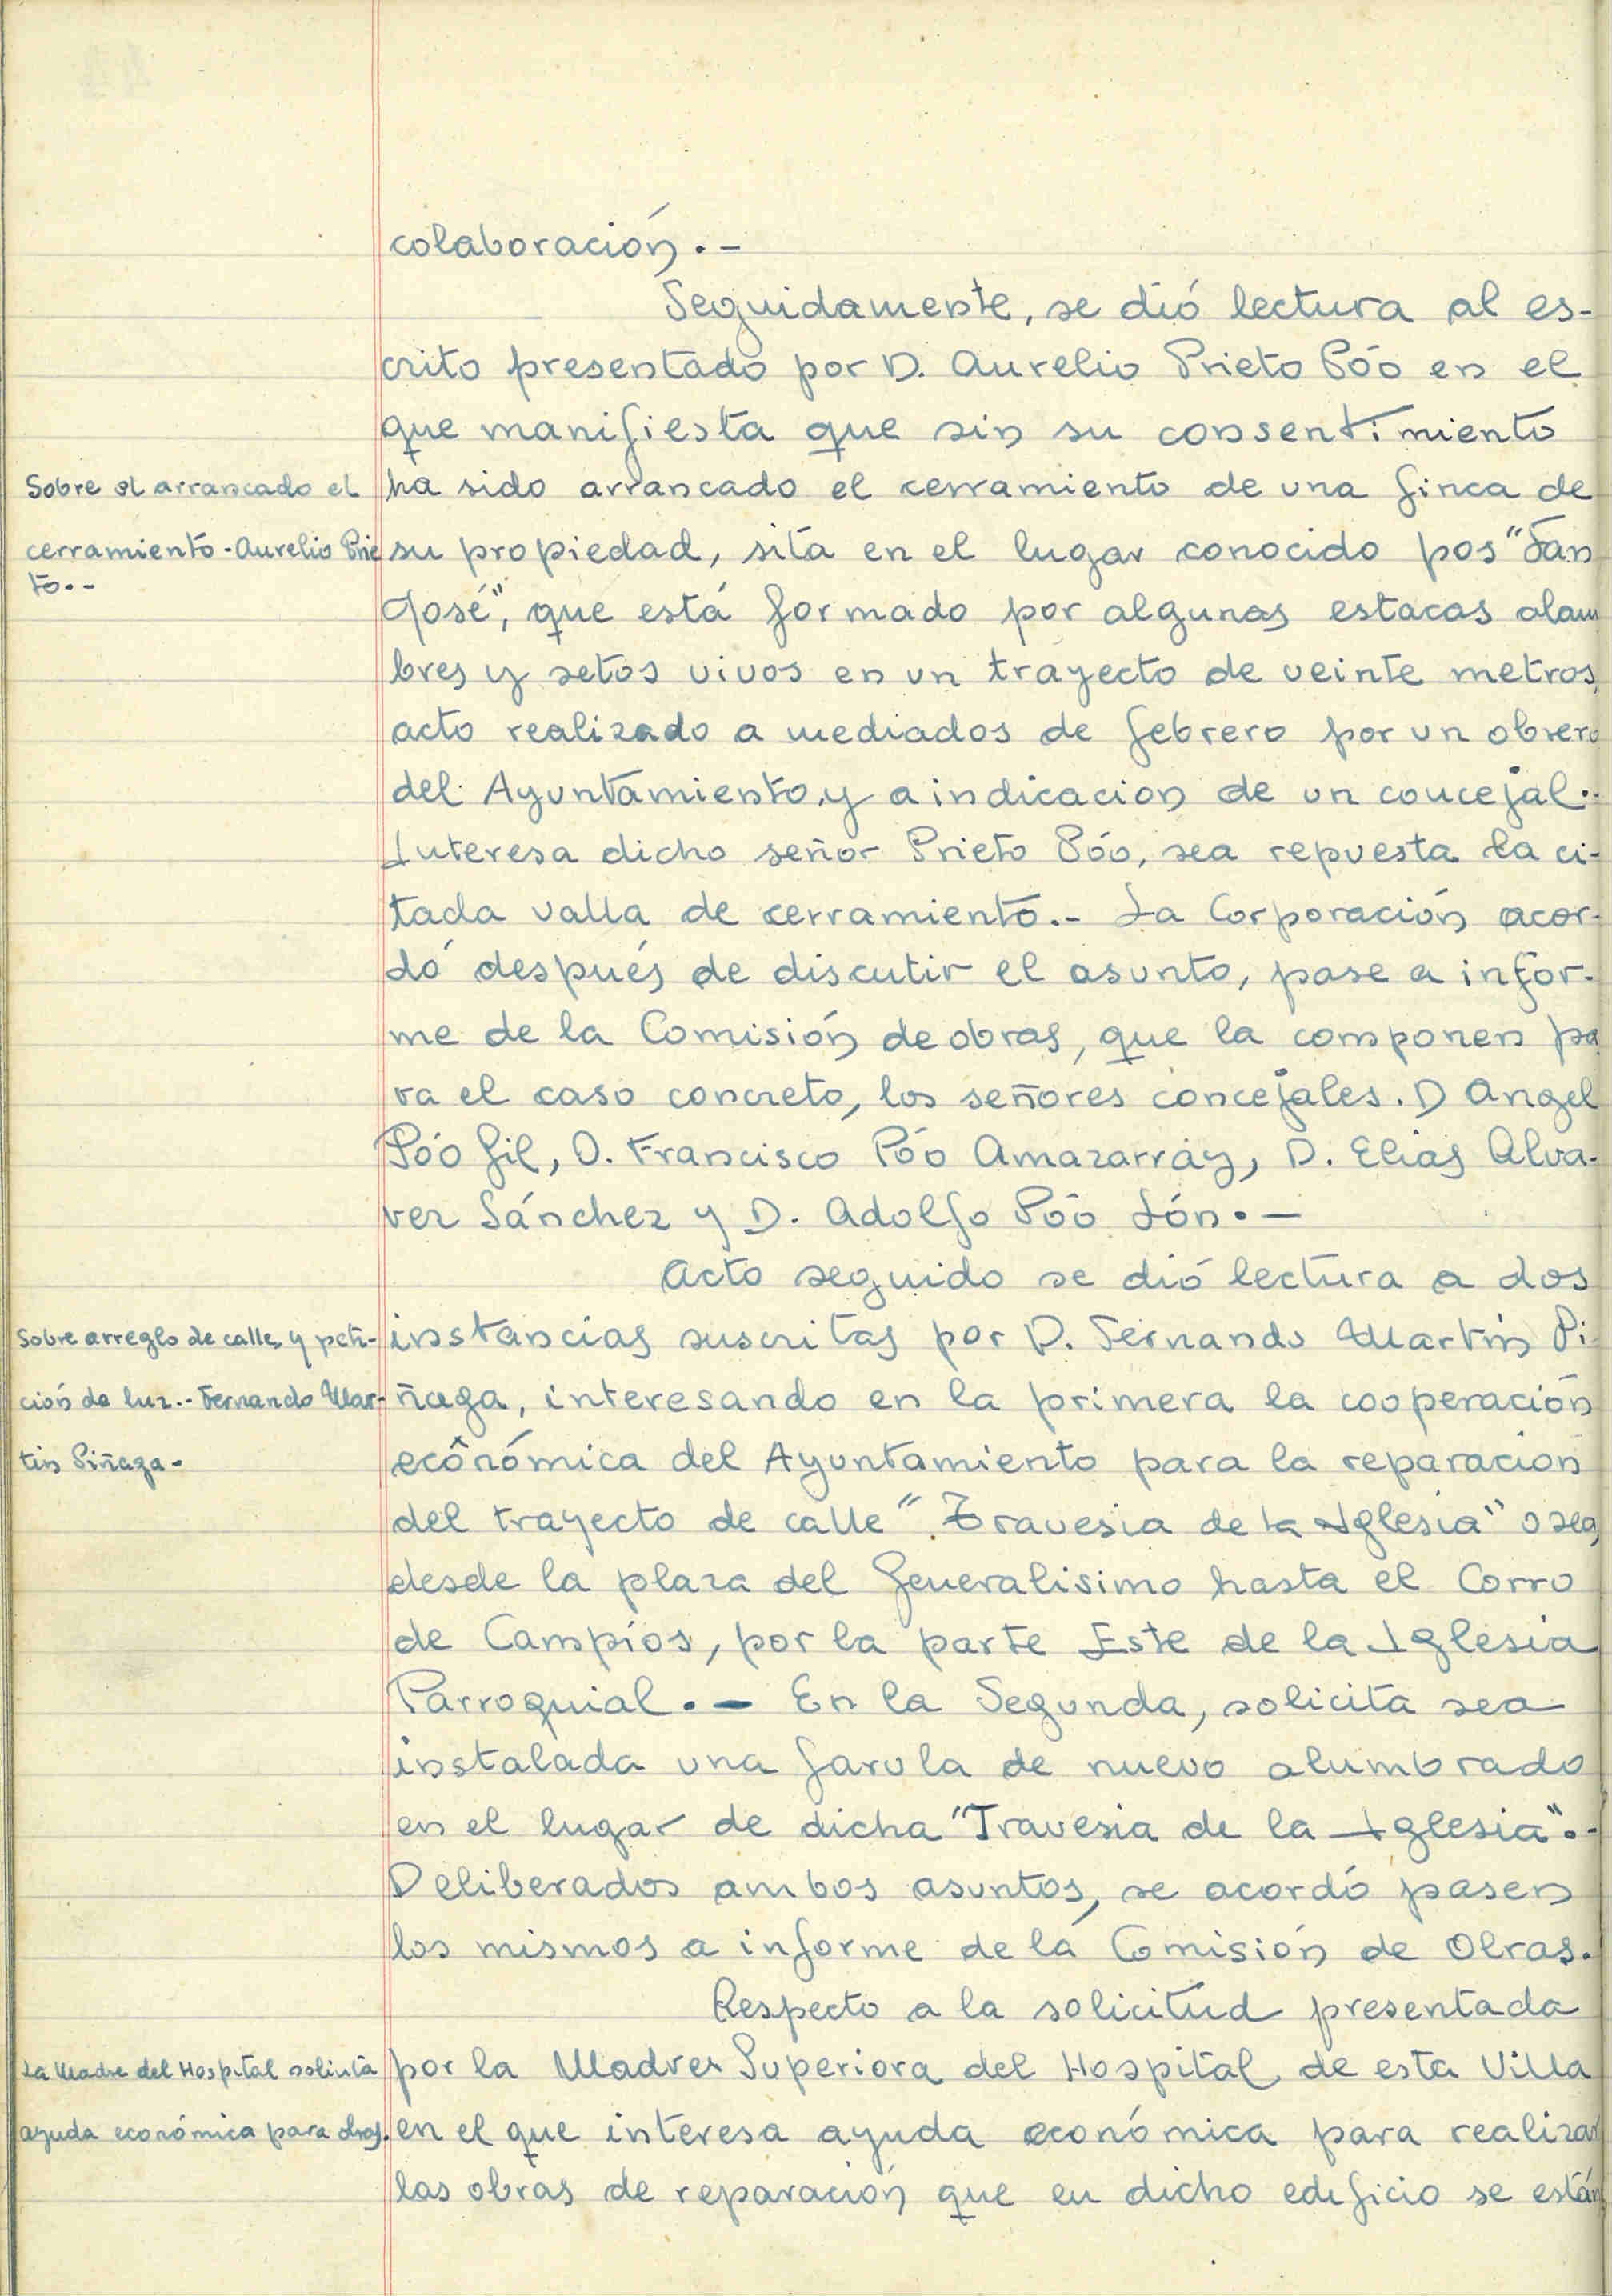 colaboración.-
Seguidamente, se dió lectura al es-
crito presentado por D. Aurelio Prieto Póo en el
que manifiesta que sin su consentimiento
Sobre el arrancado el
cerramiento - Aurelio Prie
to.-
ha sido arrancado el cerramiento de una finca de
su propiedad, sita en el lugar conocido pos "San
José", que está formado por algunas estacas alam
bres y setos vivos en un trayecto de veinte metros,
acto realizado a mediados de febrero por un obrero
del Ayuntamiento, y a indicacion de un concejal.-
Interesa dicho señor Prieto Póo, sea repuesta la ci-
tada valla de cerramiento.- La Corporación acor-
dó después de discutir el asunto, pase a infor-
me de la Comisión de obras, que la componen pa
ra el caso concreto, los señores concejales. D Angel
Póo Gil, D. Francisco Póo Amazarray, D. Elias Alva-
rez Sánchez y D. Adolfo Póo Lón.-
Acto seguido se dió lectura a dos
Sobre arreglo de calle, y peti-
ción de luz.- Fernando Mar-
tin Piñaga-
instancias suscritas por D. Fernando Martín Pi-
ñaga, interesando en la primera la cooperación
económica del Ayuntamiento para la reparacion
del trayecto de calle "Travesia de la Iglesia" o sea,
desde la plaza del Generalisimo hasta el Corro
de Campíos, por la parte Este de la Iglesia
Parroquial.- En la Segunda, solicita sea
instalada una farola de nuevo alumbrado
en el lugar de dicha "Travesia de la Iglesia".-
Deliberados ambos asuntos, se acordó pasen
los mismos a informe de la Comisión de Obras.
Respecto a la solicitud presentada
La Madre del Hospital solicita
ayuda económica para obras.
por la Madre Superiora del Hospital de esta Villa
en el que interesa ayuda económica para realizar
las obras de reparación que en dicho edificio se están